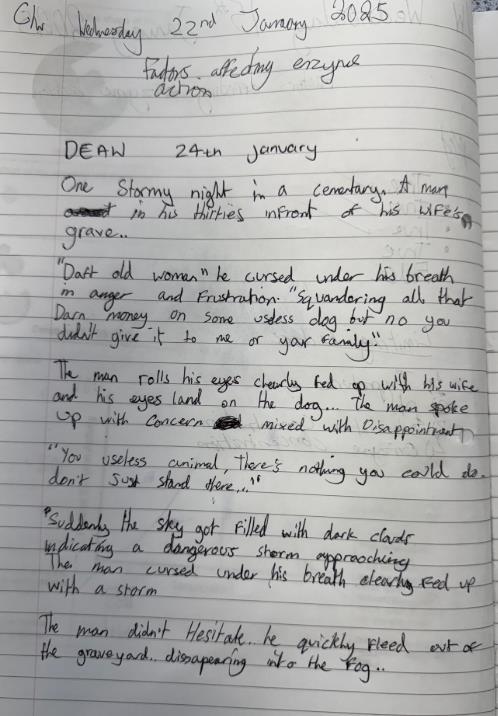 C/w Wednesday 22nd January 2025
Factors affecting enzyme
action
DEAW 24th January
One Stormy night in a cementary. A man
in his thirties infront of his wife's
grave..
"Daft old women" he cursed under his breath
in anger and Frustration. "Squandering all that
Darn money on some useless dog but no you
didn't give it to me or your Family."
The man rolls his eyes clearly fed up with his wife
and his eyes land on the dog... The man spoke
up with concern mixed with Disappointment
"You useless animal, there's nothing you could do.
don't just stand there..."
Suddenly the sky got filled with dark clouds
indicating a dangerous storm approaching
The man cursed under his breath clearly Fed up
with a storm
The man didn't Hesitate.. he quickly fleed out of
the graveyard.. dissapearing into the Fog..